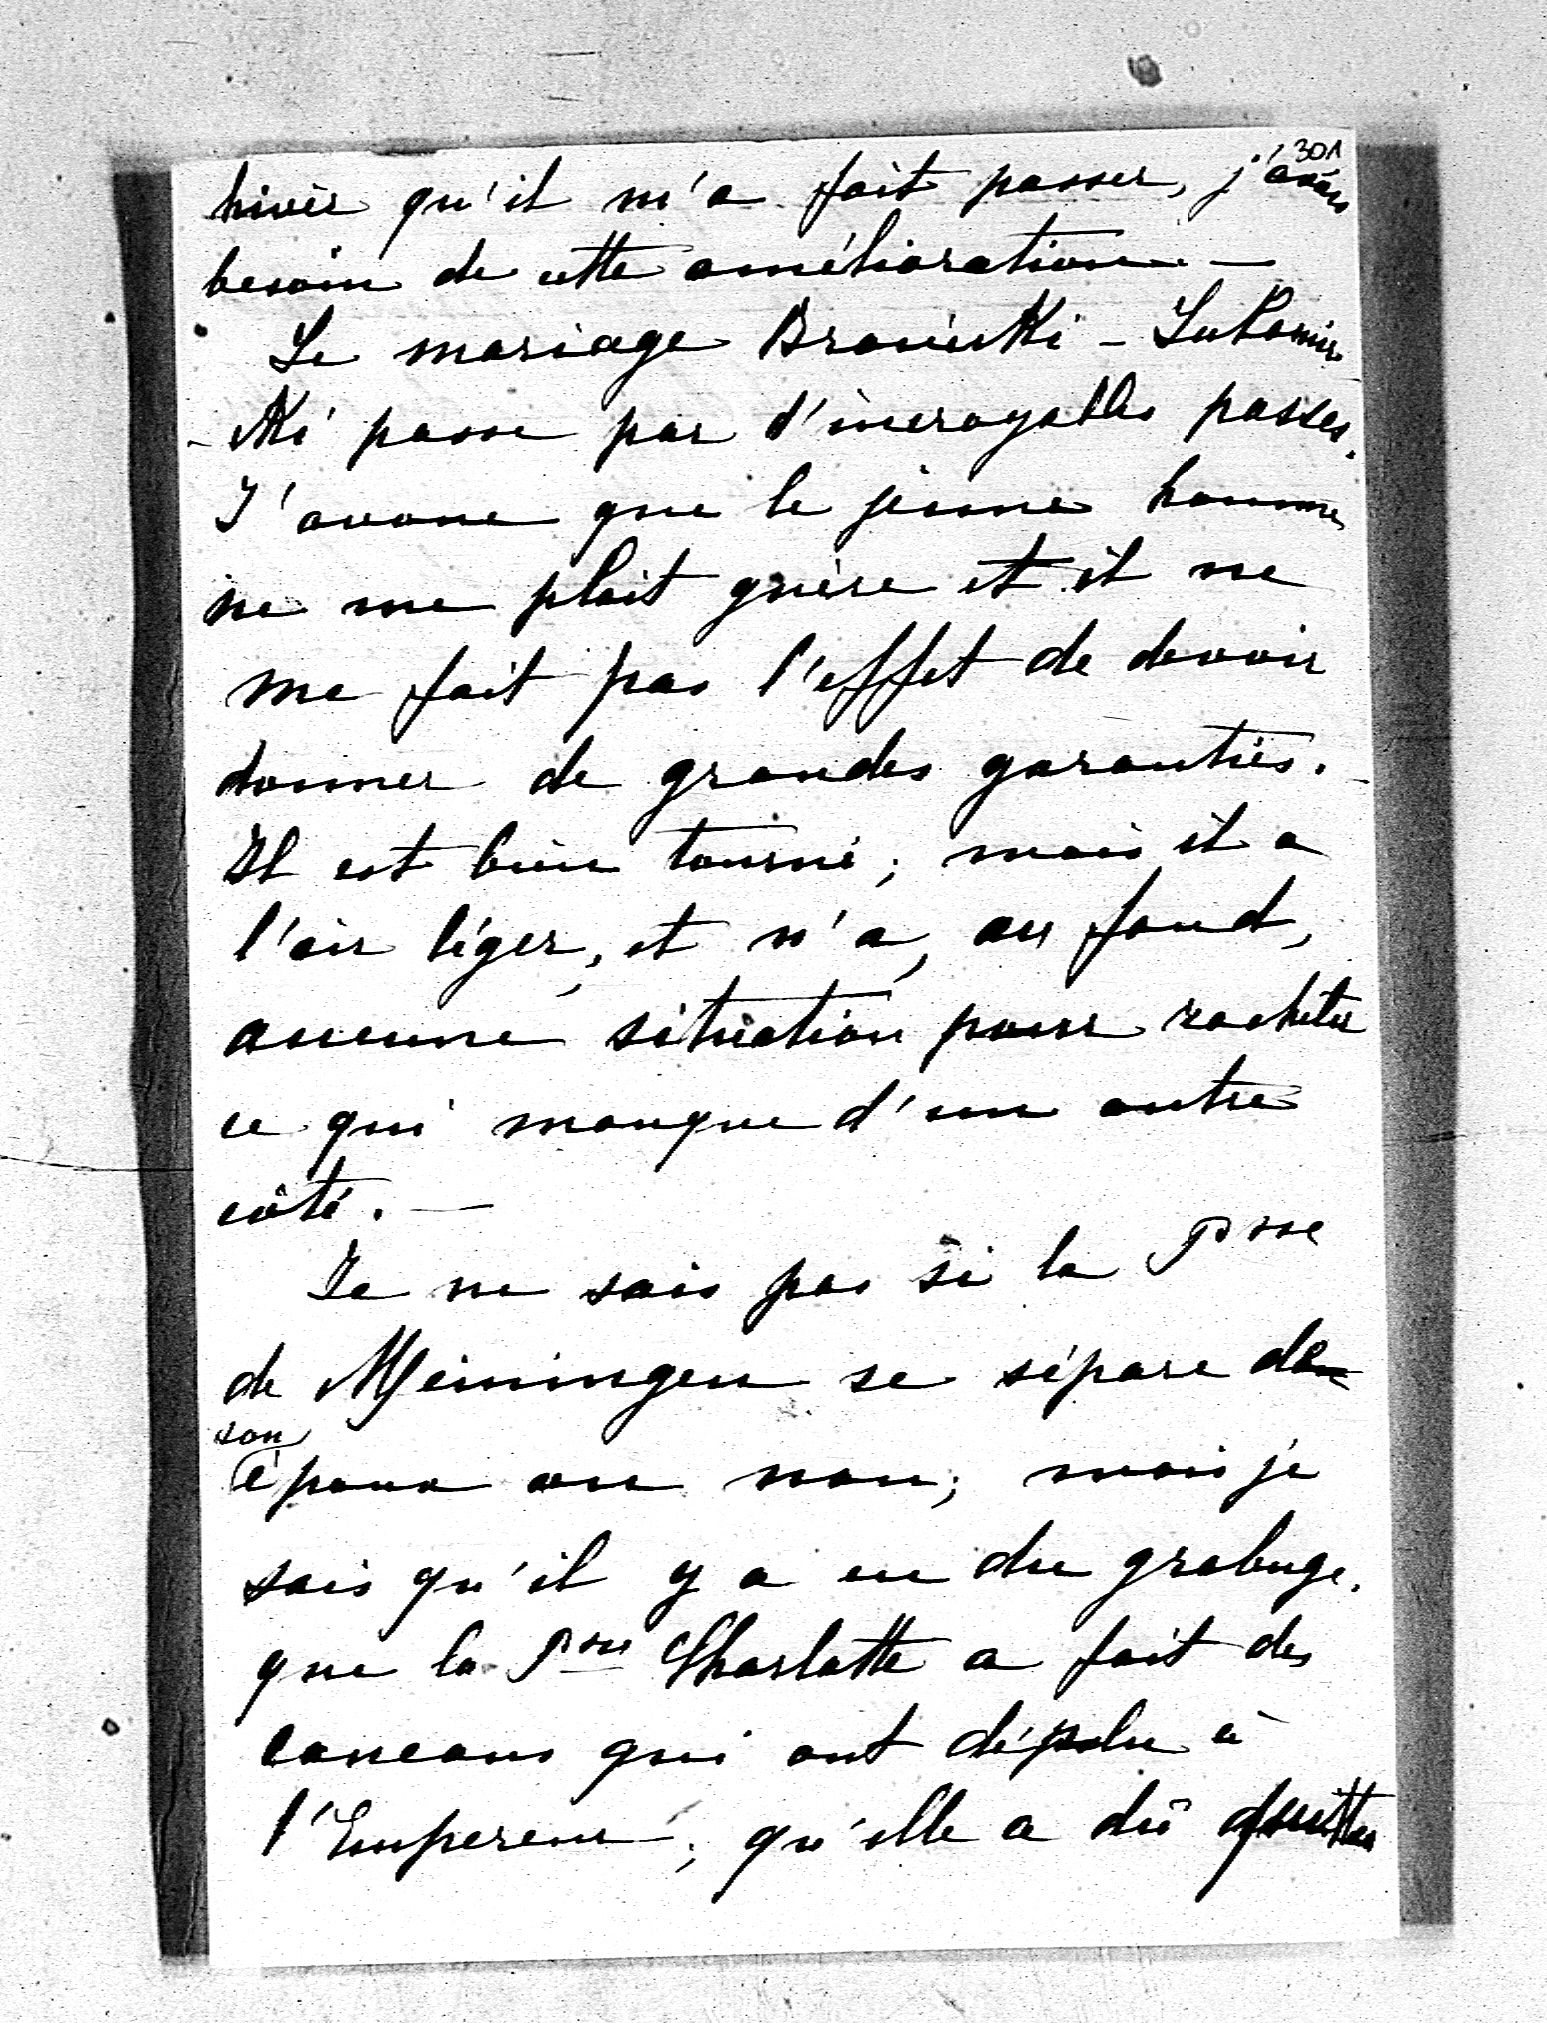 301
hiver qu'il m'a fait passer, j'avais
besoin de cette amélioration. —
Le mariage Branicki - Lubomir-
-ski passe par d'incroyables passes.
J'avoue que le jeune homme
ne me plait guère et il ne
me fait pas l'effet de devoir
donner de grandes garanties. -
Il est bien tourné; mais il a
l'air léger, et n'a, au fond,
aucune situation pour racheter
ce qui manque d'un autre
côté. —
Je ne sais pas si la Psse
de Meiningen se sépare de
son
époux ou non; mais je
sais qu'il y a eu du grabuge,
que la Psse Charlotte a fait des
cancans qui ont déplu à
l'Empereur; qu'elle a dû quitter